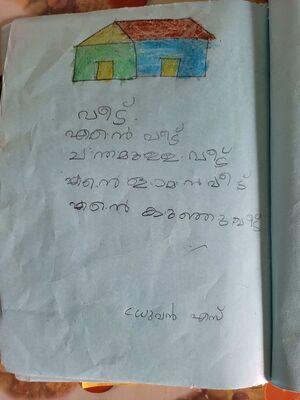 വീട്
എൻെറ വീട്
ചന്തമുള്ള വീട്
എൻെറ ഓമന വീട്
എൻെറ കുഞ്ഞു വീട്
ധ്രുവൻ എസ്